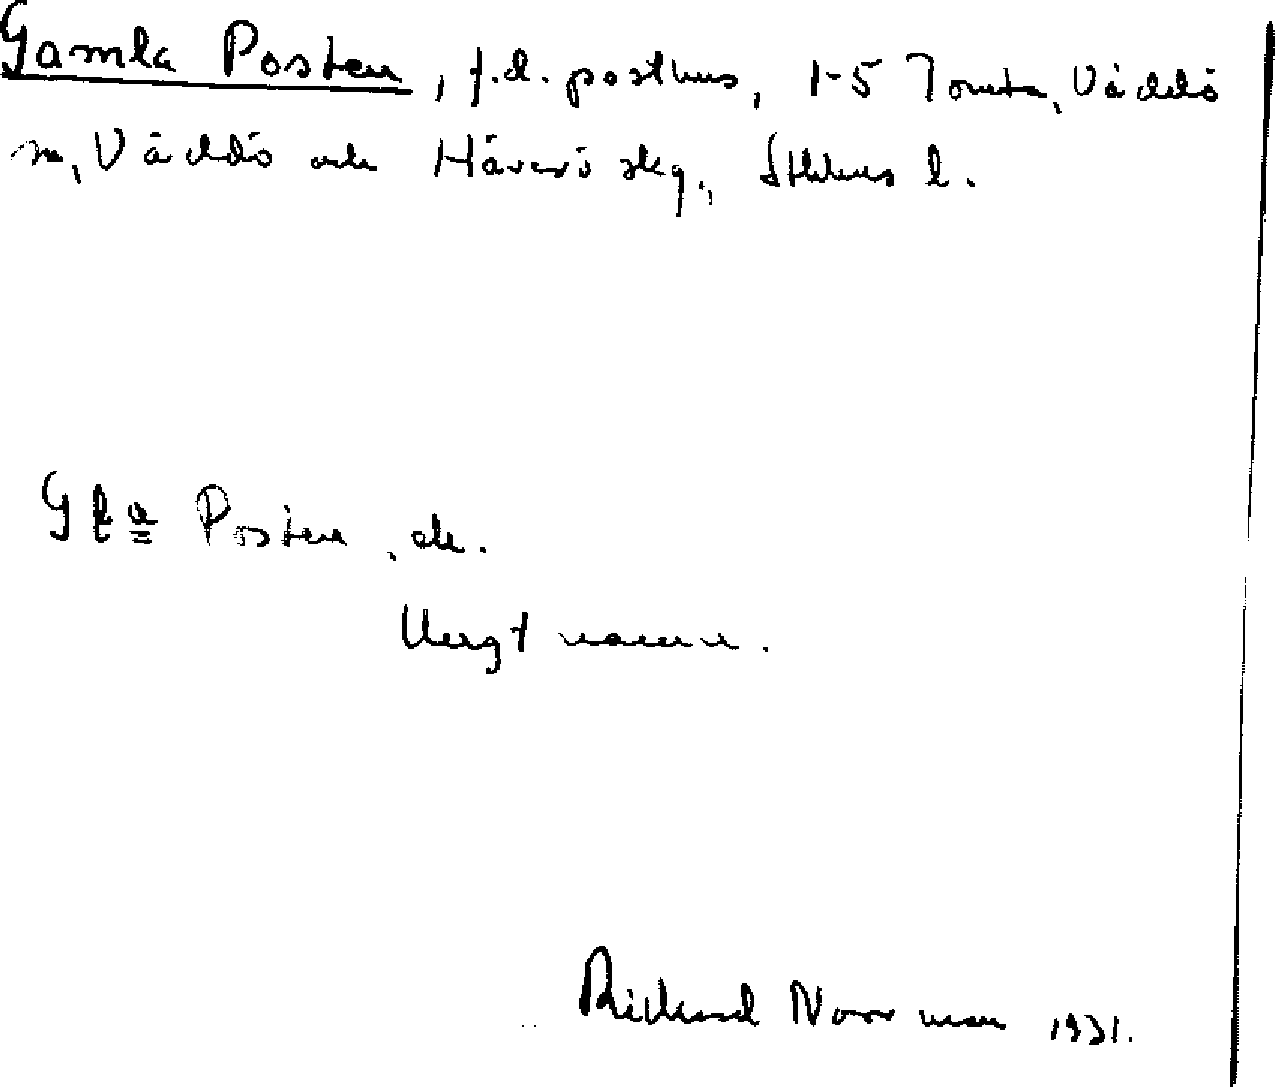 Gamla Posten, f.d. posthus, 1-5 Tomta, Väddö
sn, Väddö och Häverö skg., Sthlms l.
Gla Posten, ele.
Ungt namn.
Rickard Norrman 1931.